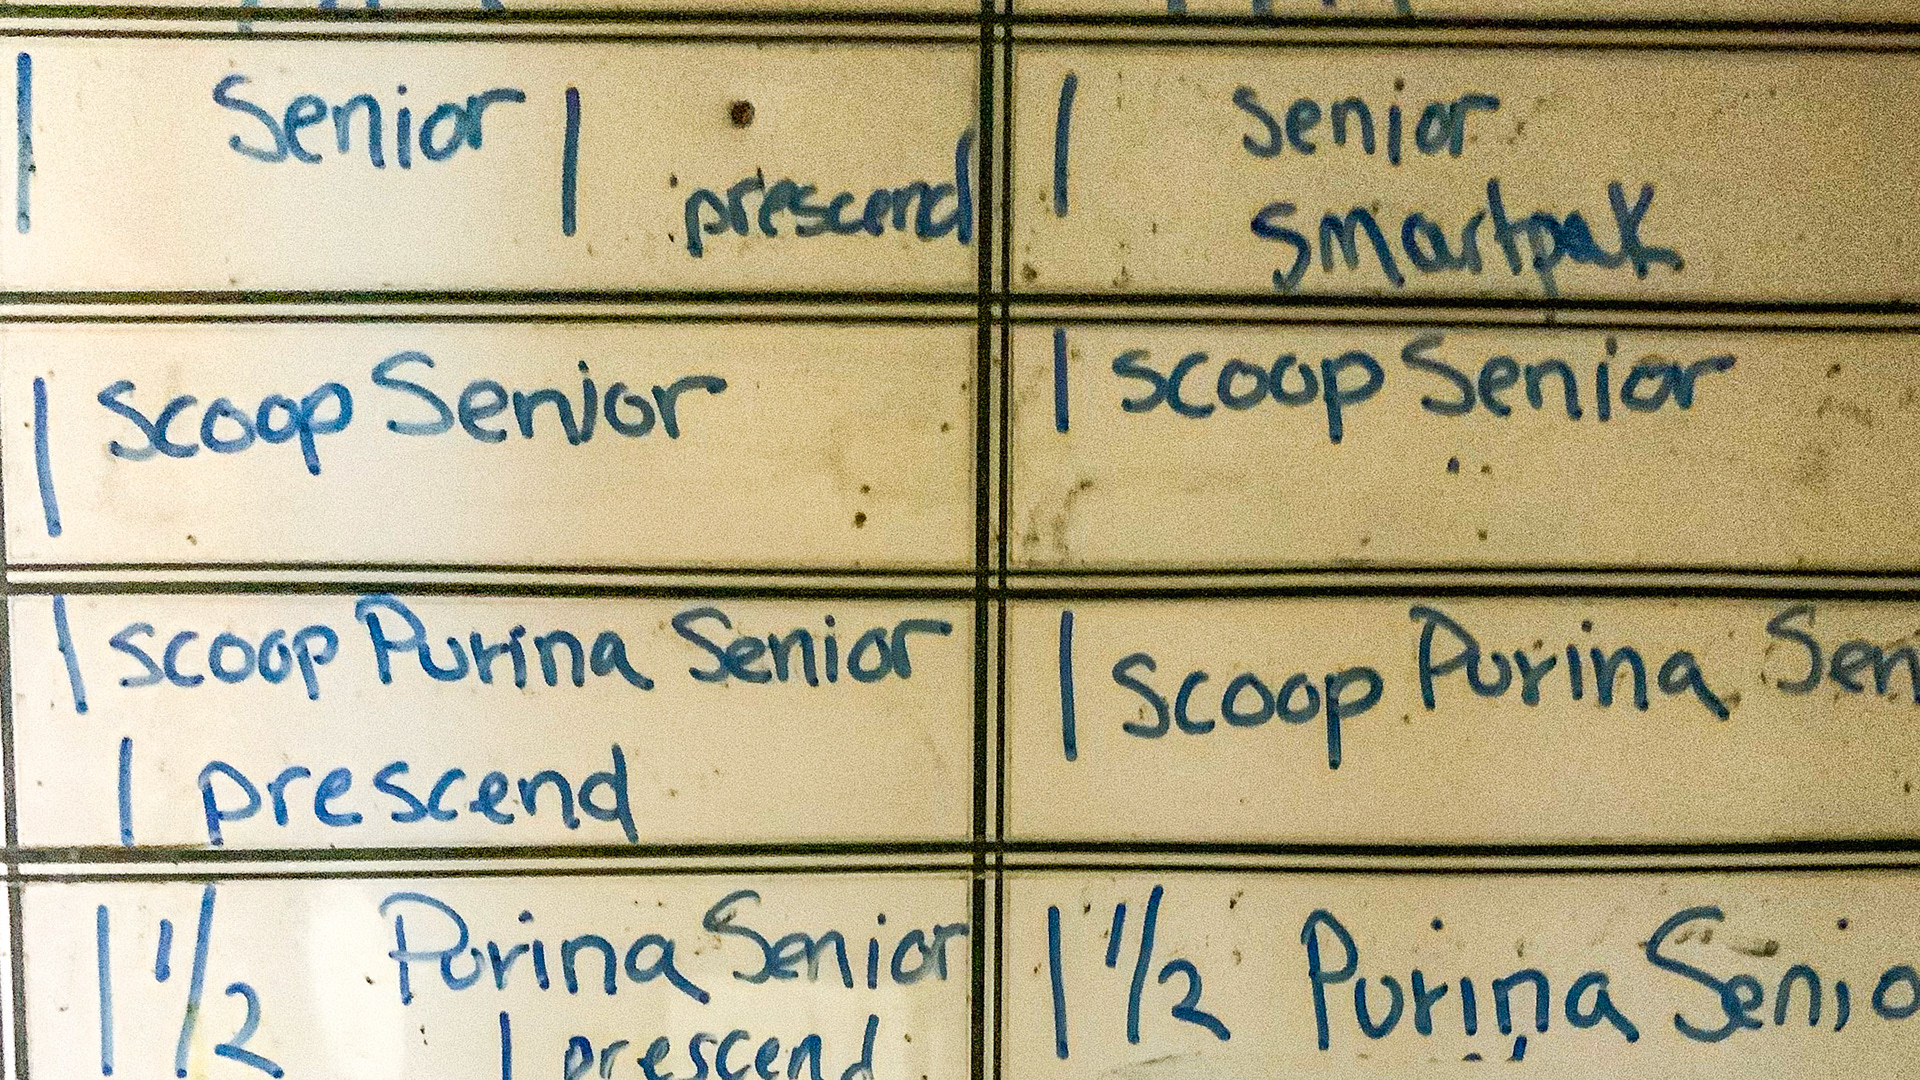 1 Senior 1 prescend
1 Senior
smartpak
1 scoop Senior
1 scoop Senior
1 scoop Purina Senior
1 prescend
1 scoop Purina Sen
1 1/2 Purina Senior
1 prescend
1 1/2 Purina Senio